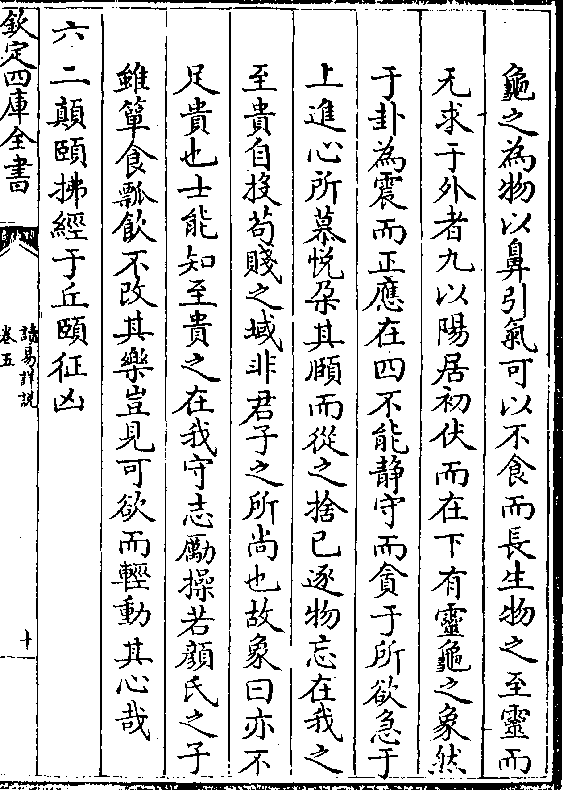 龜之為物以鼻引氣可以不食而長生物之至靈而
无求于外者九以陽居初伏而在下有靈龜之象然
于卦為震而正應在四不能静守而貪于所欲急于
上進心所慕悦朶其頤而從之捨已逐物忘在我之
至貴自投茍賤之域非君子之所尚也故象曰亦不
足貴也士能知至貴之在我守志勵操若顔氏之子
雖簞食瓢飲不改其樂豈見可欲而輕動其心哉
六二顛頤拂經于丘頤征凶
欽定四庫全書
讀易詳說
卷五
十